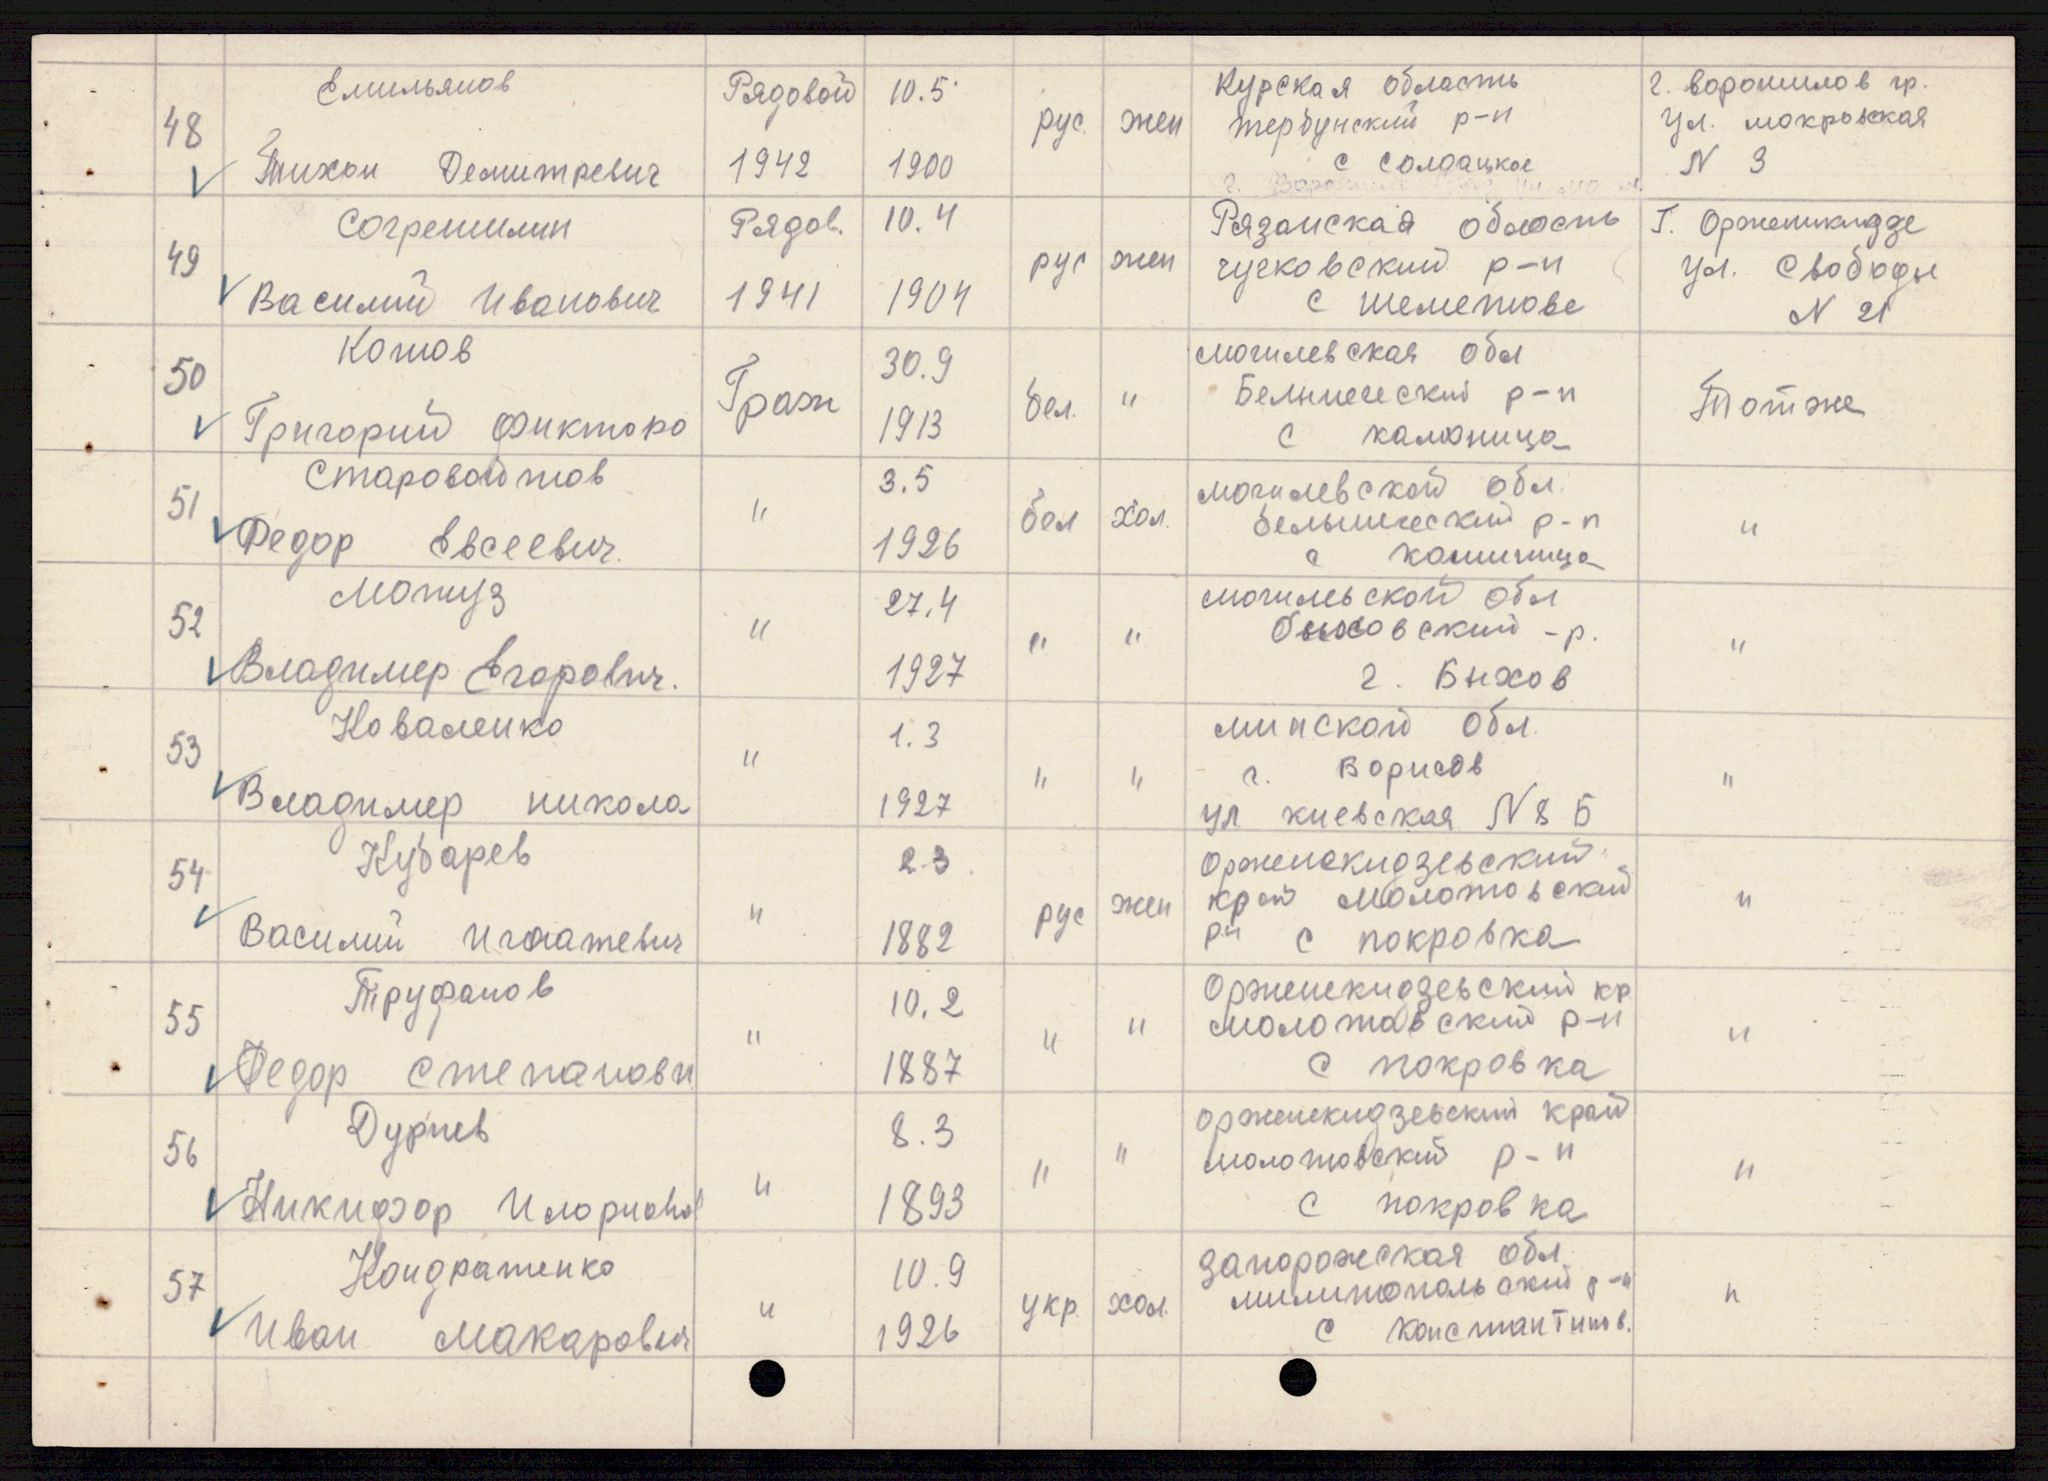 48 Емильянов Рядовой 10.5 рус. жен Курская область г. ворошилов гр.
Тербунский р-н ул. мокровская
Тихон Демитревич 1942 1900 с солдацкое N 3
49 Согрешилин Рядов. 10.4 рус жен Рязанская область Г. Орженикидзе
чучковский р-н ул. Свободы
Василий Иванович 1941 1904 с шеметова N 21
50 Котов Граж 30.9 бел. " могилевская обл Тотже
Белынический р-н
Григорий Фикторо 1913 с
51 Старовойтов " 3.5 бел хол. могилевской обл. "
белынический р-н
Федор Евсеевич. 1926 с
52 Мотуз " 27.4 " " могилевской обл "
быховский -р.
Владимер Егорович. 1927 г. Быхов
53 Коваленко " 1.3 " " минской обл. "
г. Борисов
Владимер никола 1927 ул киевская N 8 Б
54 Кубарев " 2 3. рус жен Орженекидзевский "
край Молотовский
Василий Игнатевич 1882 рн с покровка
55 Труфанов " 10.2 " " Орженекидзевский кр "
молотовский р-н
Федор степанови 1887 с покровка
56 Дурнев " 8.3 " " орженекидзевский край "
молотовский р-н
Никифор Иларионов 1893 с покровка
57 Кондратенко " 10.9 укр хол. запорожская обл "
милитопольский р-н
Иван Макарович 1926 с константинов.